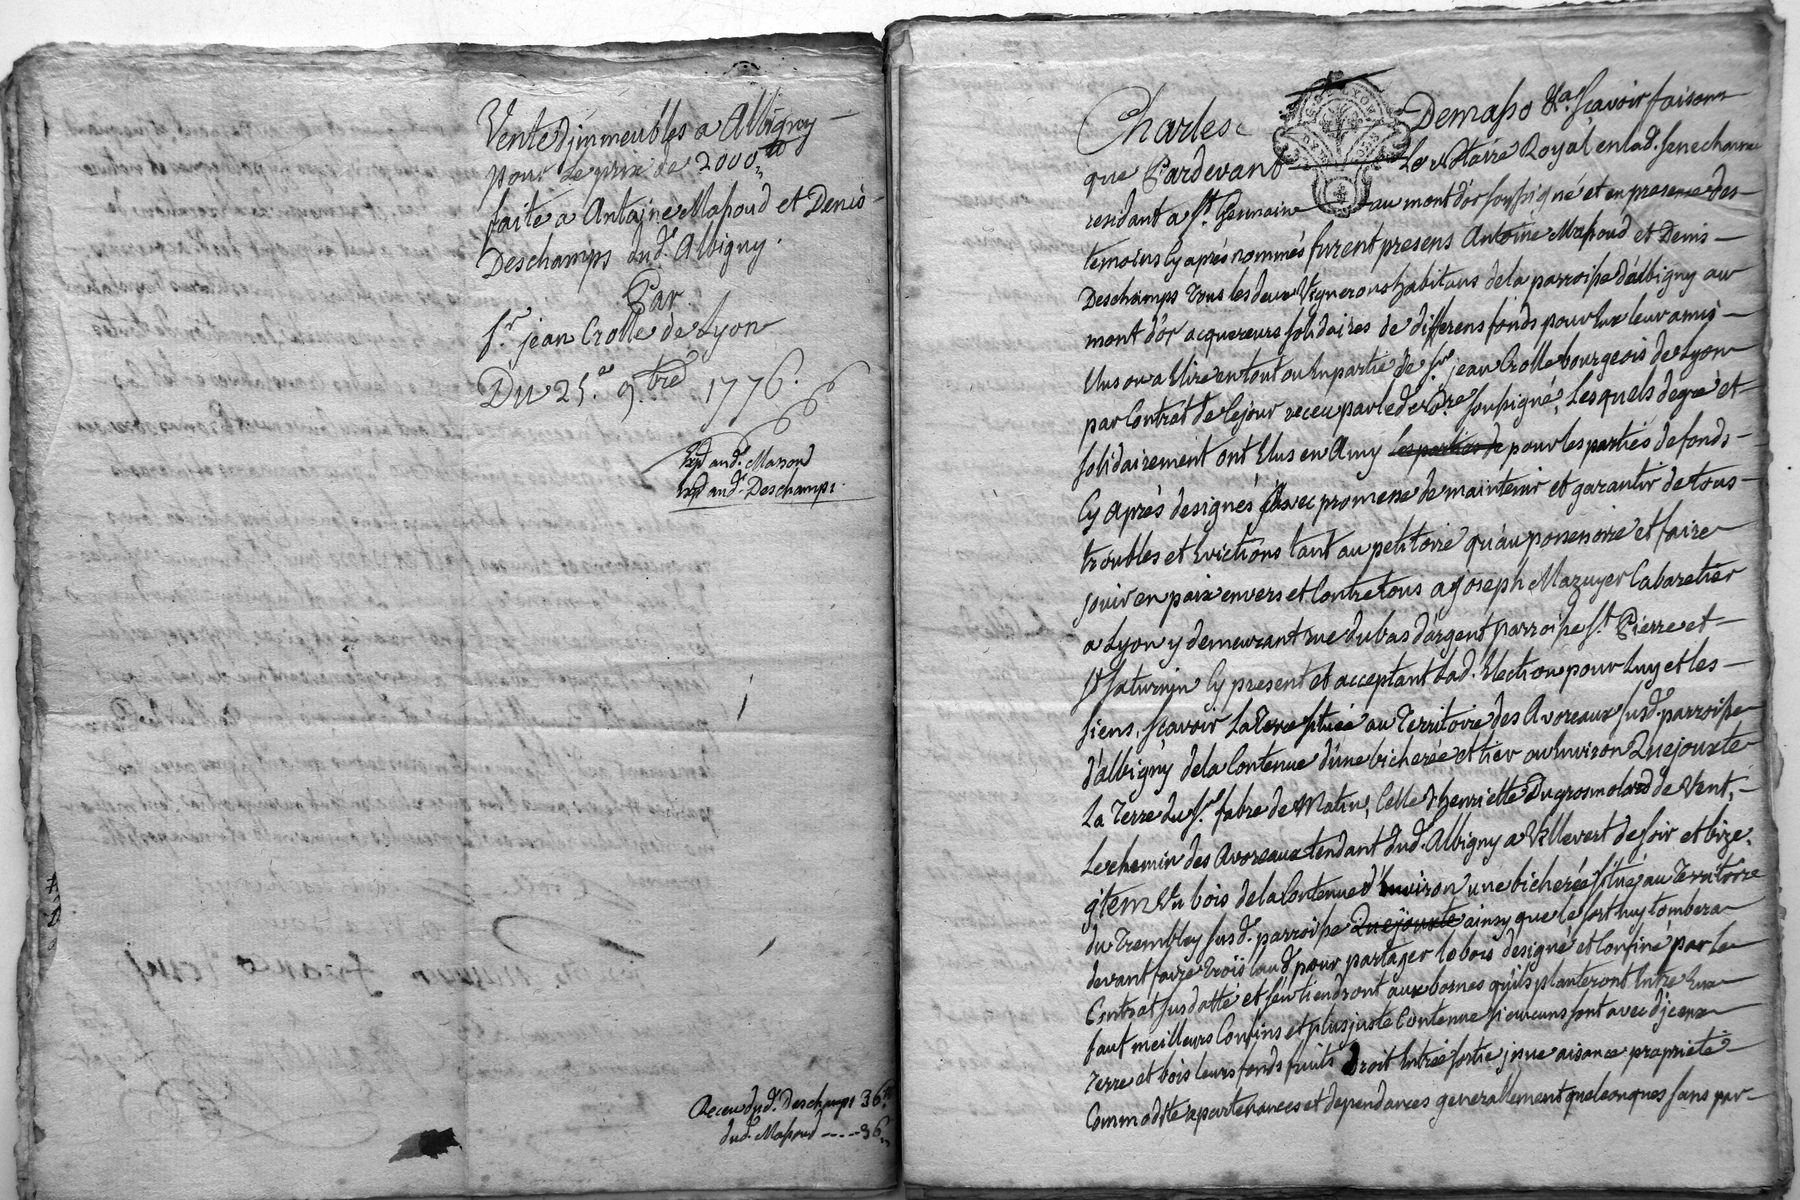 Vente Djmmeubles a Albigny
pour Le prix de 2000 ₶
faite a Antoine Mapoud et Denis
Deschamps dud. Albigny.
Par
Sr. jean Crolle de Lyon
Du 25e. 9.bre 1776.
Exp. aud. Mazoud
Exp. aud. Deschamps.
Receu dud. Deschamps 36 ₶
dud. Mapoud ---- 36
Charles Demaso &a. Sçavoir faisons
que Pardevant Le Notaire Royal en lad. Senechaussée
residant a St. Germain au mont d'or soussigné et en presence des
temoins Cy aprés nommés furent presens Antoine Mapoud et Denis
Deschamps tous les deux Vignerons habitans de la parroisse d'albigny au
mont d'or acquereurs solidaires de differens fonds pour Eux leurs amis
Elus ou a Elire en tout ou En partie de Sr. jean Crolle bourgeois de Lyon
par Contrat de Cejour receu par led. No.re soussigné, Lesquels de gré et
solidairement ont Elus en Amy les parties de pour les parties de fonds
Cy Aprés designés Avec promesse de maintenir et garantir de tous
troubles et Evictions tant au petitoire qu'au possessoire et faire
jouir en paix envers et Contre tous a joseph Mazuyer Cabaretier
a Lyon y demeurant rue du bas d'argent parroisse St. Pierre et
St. Saturnin Cy present et acceptant Lad. Election pour luy et les
siens, Sçavoir La Terre située au Territoire des Avoreaux susd. parroisse
d'albigny de la Contenue d'une bicherée et tier ou Environ Que jouxte
La Terre du Sr. fabre de Matin, Celle d'henriette Dugrosmolard de Vent,
Le chemin des Avoreaux tendant dud. Albigny a Villevert de soir et bize.
jtem Un bois de la Contenue d'Environ une bicherée situé au Territoire
du Trembley susd. parroisse Que jouxte ainsy que le sort luy tombera
devant faire trois Laud pour partager le bois designé et Confiné par le
Contrat susdatté et s'en tiendront aux bornes qu'ils planteront Entre Eux
sauf meilleurs Confins et plus juste Contenue si aucuns sont avec djceux
Terre et bois leurs fonds fruits Droit Entrée sortie jssue aisance proprieté
Commodité apartenances et dependances generallement quelconques sans par-